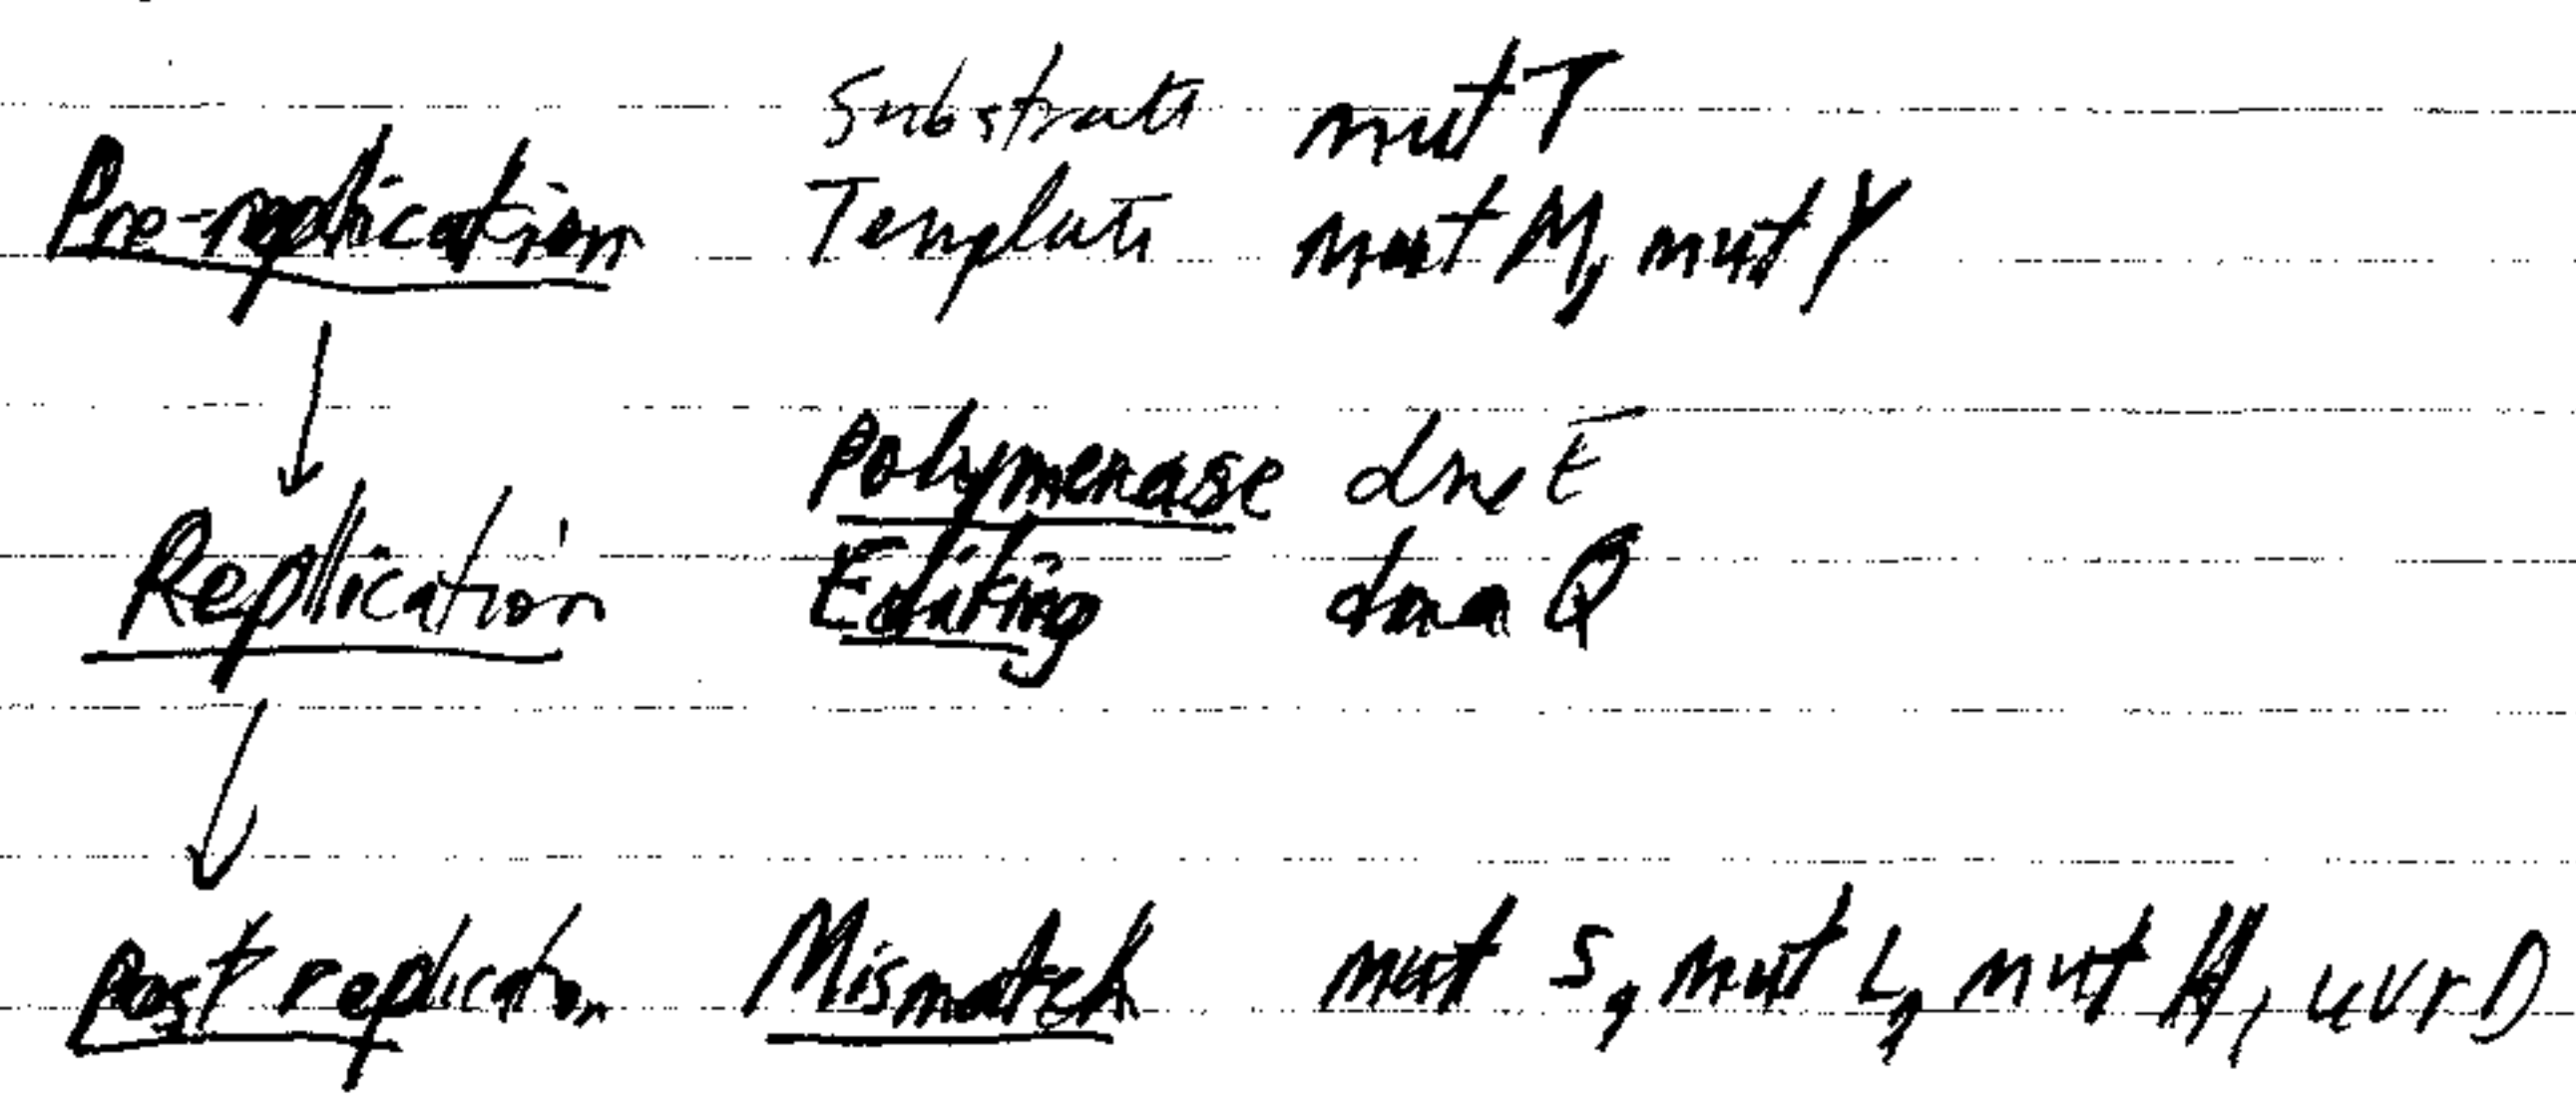 Substrate mut T
Pre-replication Template mut M, mut Y
Polymerase dna E
Replication Editing dna Q
Post replication Mismatch mut S, mut L, mut H, uvr D